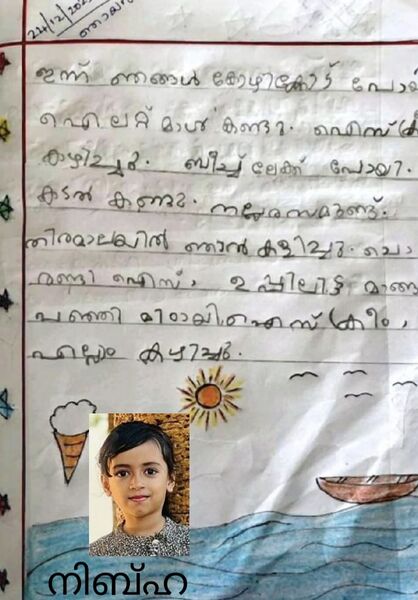 22/12/202
ഞായർ
ഇന്ന് ഞങ്ങൾ കോഴിക്കോട് പോയി
ഹൈലറ്റ് മാൾ കണ്ടു. ഐസ്ക്രീ
കഴിച്ചു. ബീച്ച് ലേക്ക് പോയി.
കടൽ കണ്ടു. നല്ലരസമുണ്ട്.
തിരമാലയിൽ ഞാൻ കളിച്ചു.
ഐസ്, ഉപ്പിലിട്ട മാങ്ങ
പഞ്ഞി മിഠായി, ഐസ്ക്രീം,
എല്ലാം കഴിച്ചു.
നിബ്ഹ